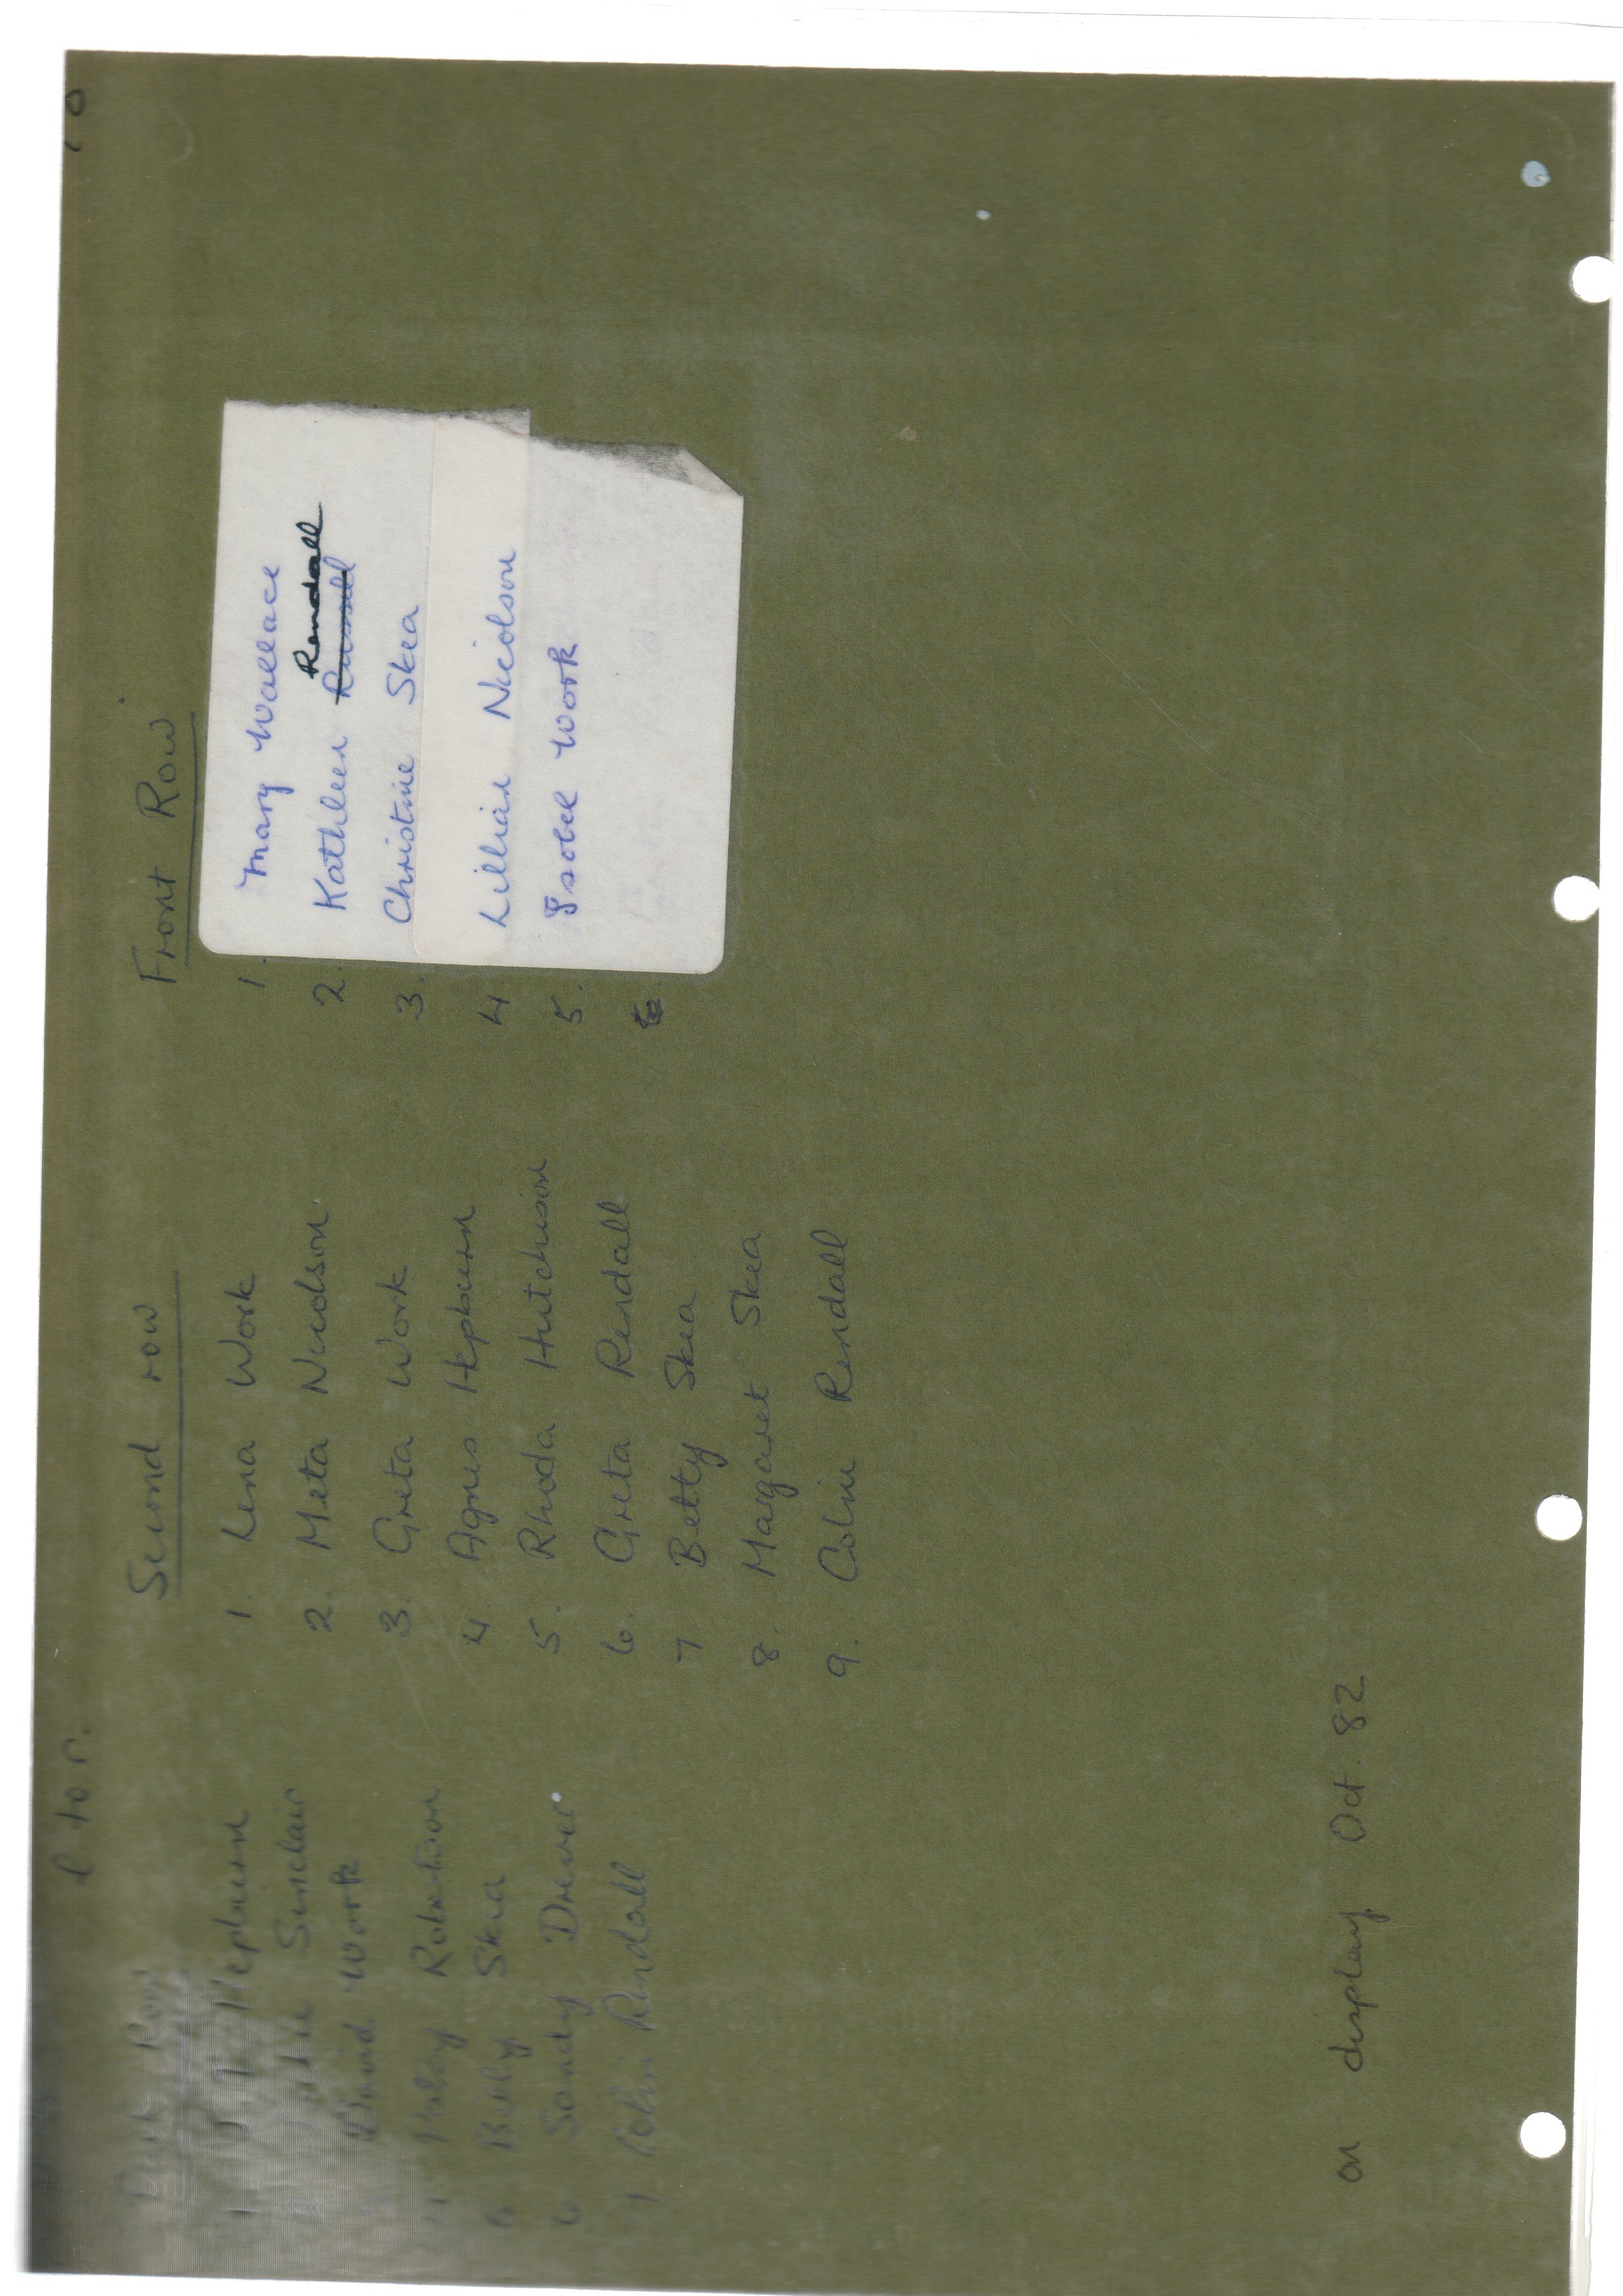 l to r.
Back Row
Hepburn
Sinclair
David Work
Robertson
5 Billy Skea
6 Sandy Drever
7 Colin Rendall
Second row
1. Lena Work
2. Meta Nicolson.
3. Greta Work
4. Agnes Hepburn
5. Rhoda Hutchison
6. Greta Rendall
7 Betty Skea
8. Margaret Skea
9. Colin Rendall
Front Row
1. Mary Wallace
Rendall
2. Kathleen Russell
3. Christine Skea
4. Lillian Nicolson
5. Isobel Work
6.
on display Oct. 82